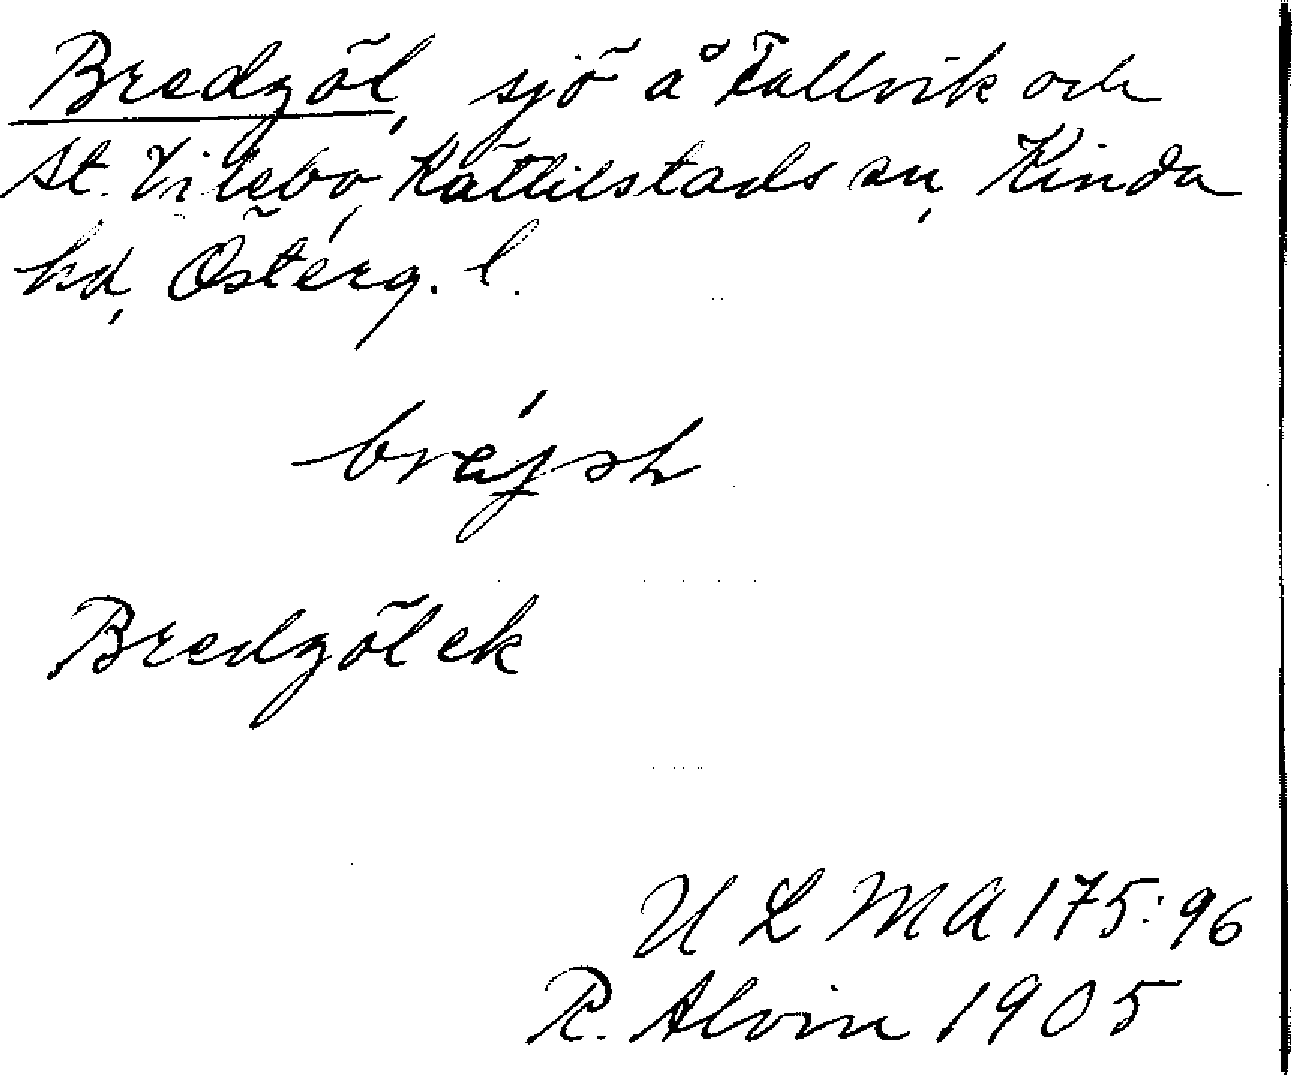 Bredgöl, sjö å Tallvik och
St. Vilebo, Kättilstads sn, Kinda
hd, Österg. l.
Bredgöl ek
ULMA 175:96
R. Alvin 1905